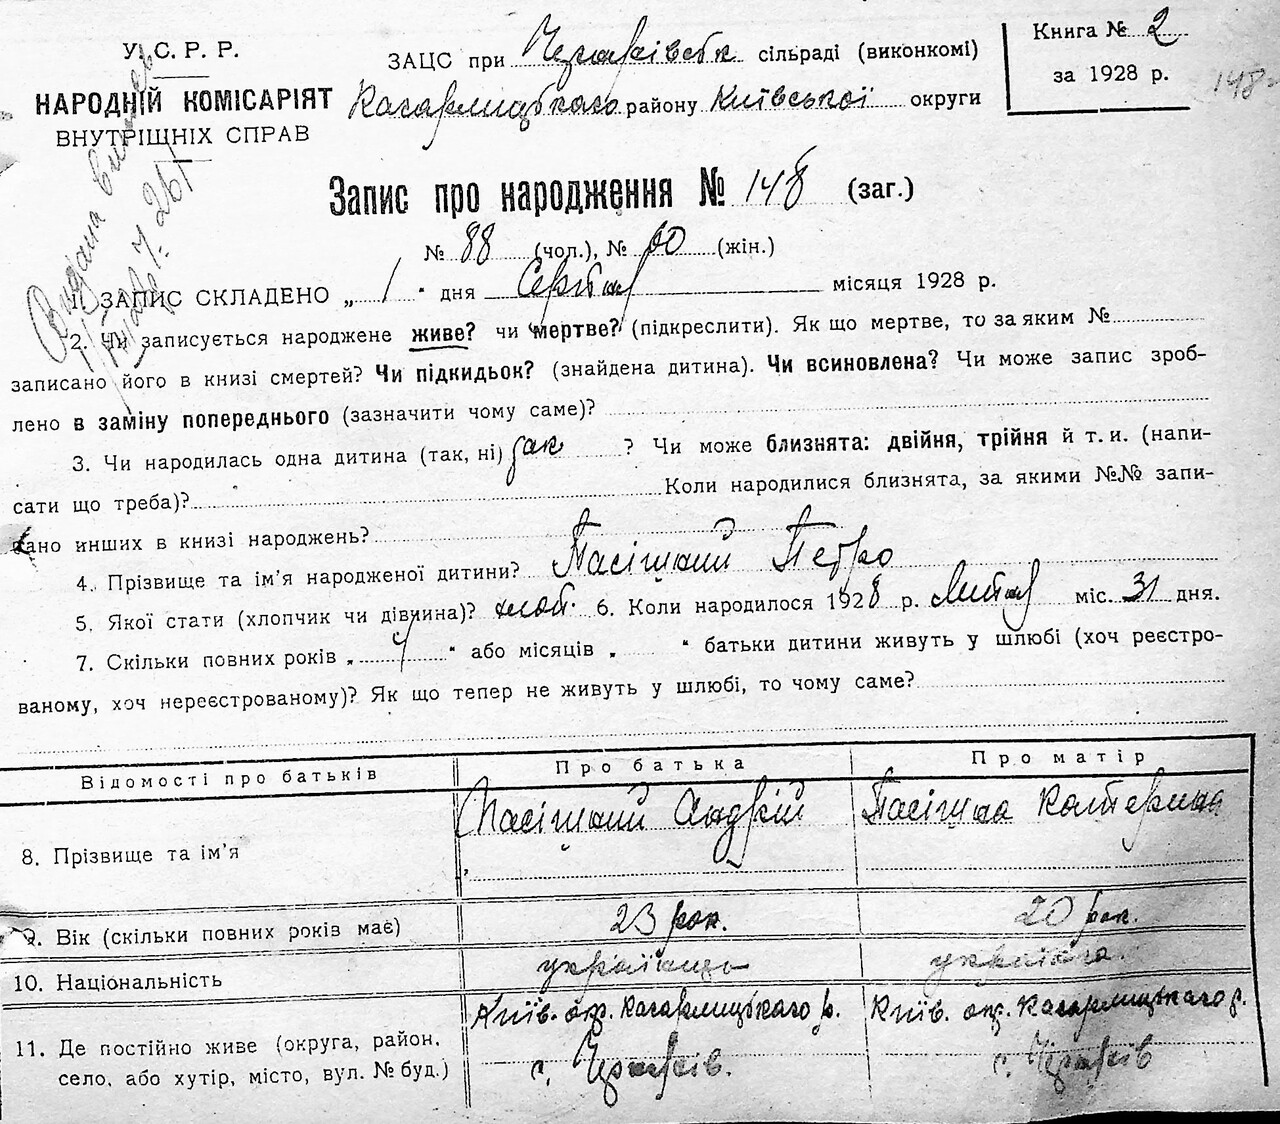 У. С. Р. Р.
НАРОДНІЙ КОМІСАРІЯТ
ВНУТРІШНІХ СПРАВ
ЗАЦС при сільраді (виконкомі)
Кагарлицького району Київської округи
Книга № 2
за 1928 р.
148
Видана
Запис про народження № 148 (заг.)
№ 88 (чол.), № 60 (жін.)
1. ЗАПИС СКЛАДЕНО „ 1 " дня Серпня місяця 1928 р.
2. Чи записується народжене живе? чи мертве? (підкреслити). Як що мертве, то за яким №
записано його в книзі смертей? Чи підкидьок? (знайдена дитина). Чи всиновлена? Чи може запис зроб-
лено в заміну попереднього (зазначити чому саме)?
3. Чи народилась одна дитина (так, ні) так ? Чи може близнята: двійня, трійня й т. и. (напи-
сати що треба)? Коли народилися близнята, за якими №№ запи-
сано инших в книзі народжень?
4. Прізвище та ім'я народженої дитини? Пасішний Петро
5. Якої стати (хлопчик чи дівчина)? хлоп. 6. Коли народилося 1928 р. Липня міс. 31 дня.
7. Скільки повних років „ 4 " або місяців „ " батьки дитини живуть у шлюбі (хоч реєстро-
ваному, хоч нереєстрованому)? Як що тепер не живуть у шлюбі, то чому саме?
Відомості про батьків Про батька Про матір
8. Прізвище та ім'я Пасішний Андрій Пасішна Катерина
9. Вік (скільки повних років має) 23 рок. 20 рок.
10. Національність українць українка.
11. Де постійно живе (округа, район, село, або хутір, місто, вул. № буд.) Київ. окр. Кагарлицького р. Київ. окр. Кагарлицького р.
с. с.